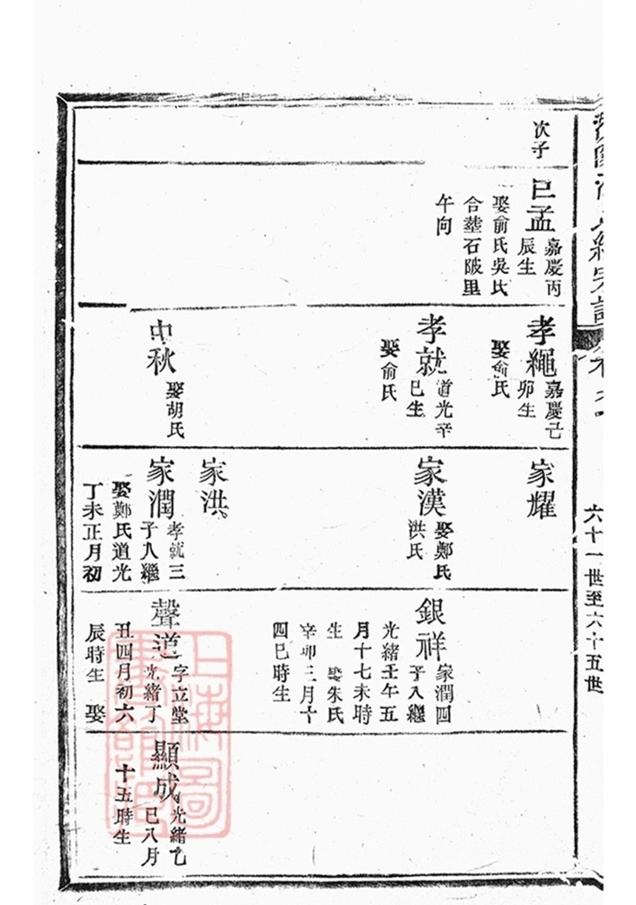 六十一世至六十五世
次子
已孟
嘉慶丙
辰生
娶俞氏吳氏
合塟石陂里
午向
孝繩
嘉慶己
卯生
娶俞氏
孝就
道光辛
巳生
娶俞氏
中秋
娶胡氏
家耀
家漢
娶鄭氏
洪氏
家洪
家潤
孝就三
子入繼
娶鄭氏道光
丁未正月初
銀祥
家潤四
子入繼
光緒壬午五
月十七未時
生 娶朱氏
辛卯三月十
四巳時生
聲道
字立堂
光緒丁
丑四月初六
辰時生 娶
顯成
光緒乙
巳八月
十五時生
上海圖
書館藏